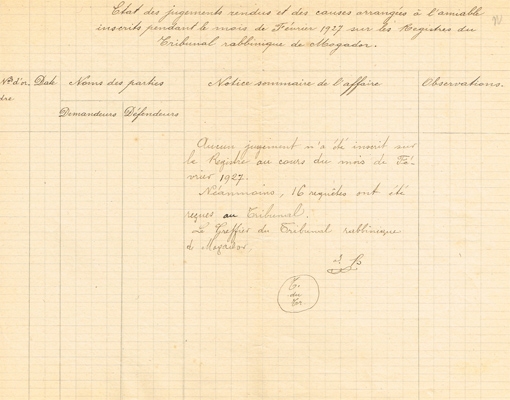 Etat des jugements rendus et des causes arrangées à l'amiable
inscrits pendant le mois de Février 1927 sur les Registres du
Tribunal rabbinique de Mogador.
Nº d'or- Date Noms des parties Notice sommaire de l'affaire Observations.
dre
Demandeurs Défendeurs
Aucun jugement n'a été inscrit sur
le Registre au cours du mois de Fé-
vrier 1927.
Néanmoins, 16 requêtes ont été
reçues au Tribunal.
Le Greffier du Tribunal rabbinique
de Mogador